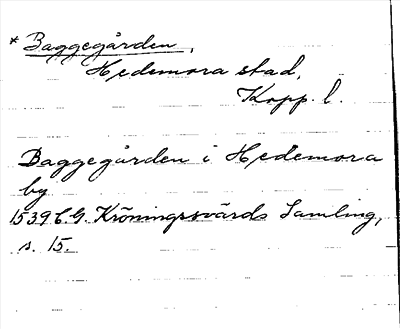 * Baggegården,
Hedemora stad,
Kopp. l.
Baggegården i Hedemora
by
1539 C.G. Kröningssvärds Samling,
s. 15.